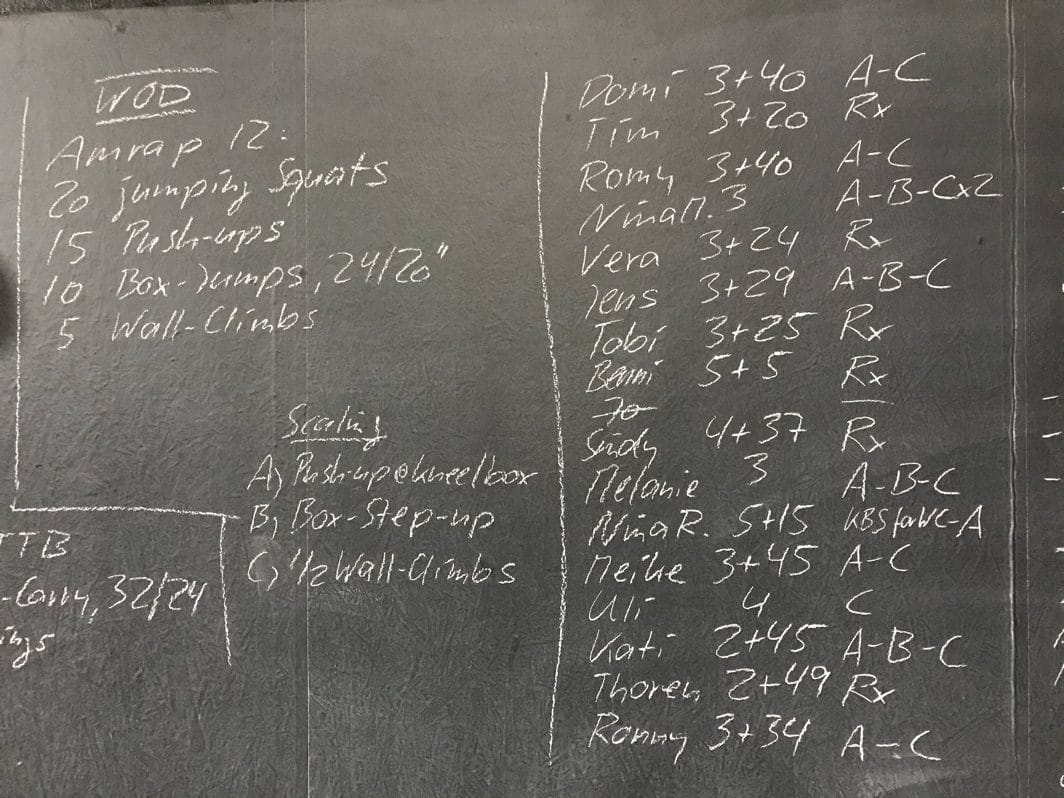 WOD
Amrap 12:
20 jumping Squats
15 Push-ups
10 Box-Jumps, 24/20"
5 Wall-Climbs
Scaling
A) Push-up@knee/box
B) Box-Step-up
C) 1/2 Wall-Climbs
TTB
-Carry, 32/24
ings
Domi 3+40 A-C
Tim 3+20 Rx
Romy 3+40 A-C
Nina M. 3 A-B-Cx2
Vera 3+24 Rx
Jens 3+29 A-B-C
Tobi 3+25 Rx
Benni 5+5 Rx
Jo
Sindy 4+37 Rx
Melanie 3 A-B-C
Nina R. 5+15 KBS for WC-A
Meike 3+45 A-C
Uli 4 C
Kati 2+45 A-B-C
Thoren 2+49 Rx
Ronny 3+34 A-C